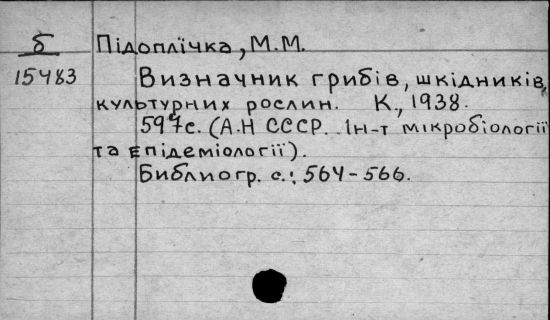 б Підоплїчка, М.М.
15483 Визначник грибів, шкідників,
культурних рослин. К., 1938.
597с. (А.Н СССР. Ін-т мікробіології
та епідеміології).
Библиогр. с.: 564-566.